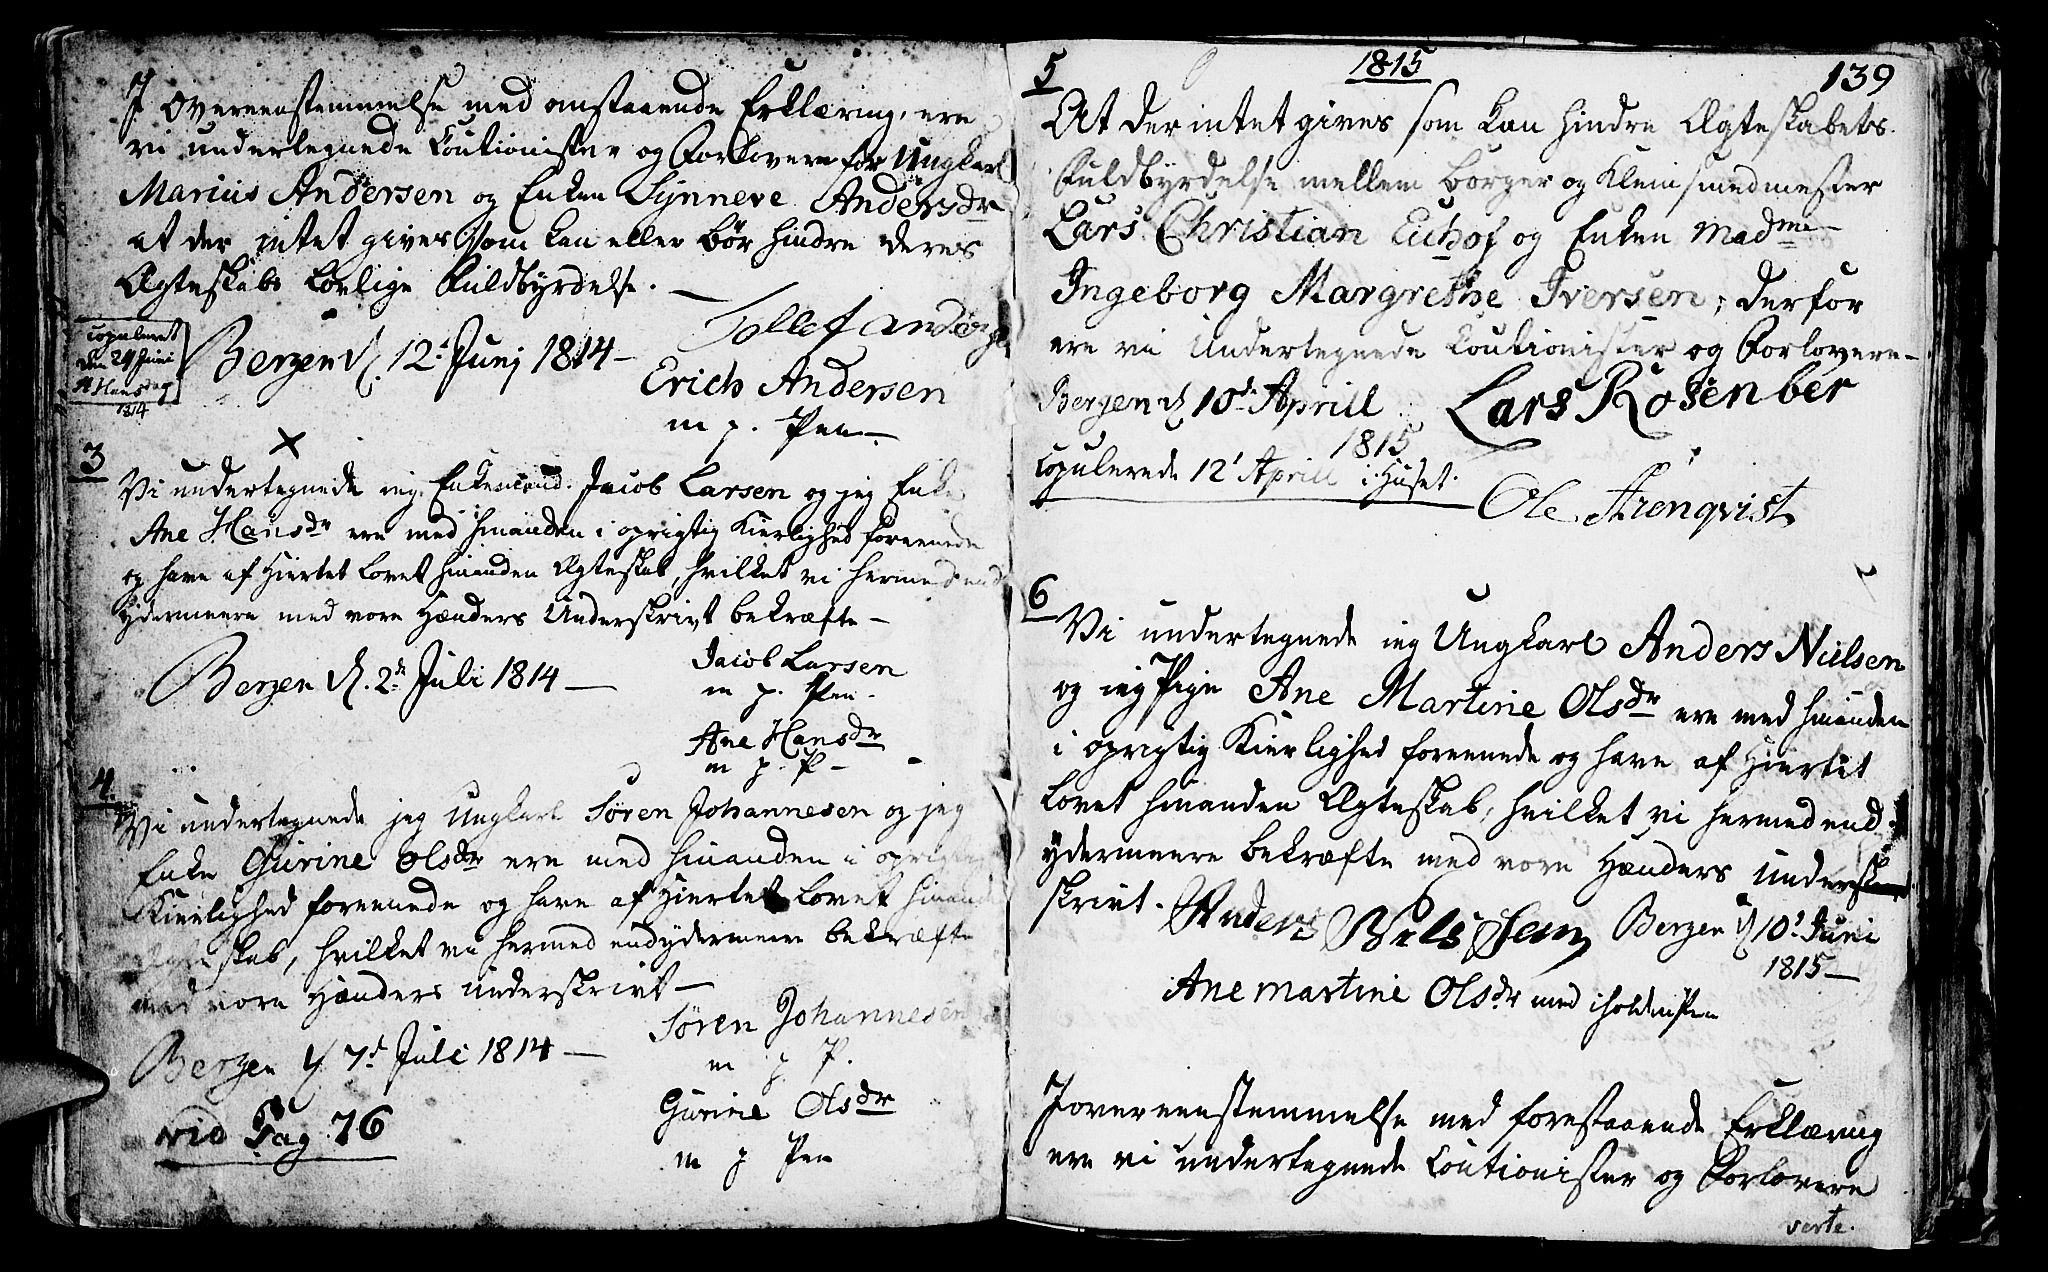 I Overeenstemmelse med anstaaende Erklæring, ere
vi undertegnede Coutionister og Forlovere for Ungkarl
Marius Andersen og Enken Synneve Andersdr
at der intet gives som kan eller bør hindre deres
Ægteskabs Lovlige Fuldbyrdelse. —
Tollef
Copuleret
den 24 Juni
St Hansdag
1814
Bergen d. 12t Junj 1814 —
Erich Andersen
m. p. Pen.
3
Vi undertegnede ieg Enkemand Jacob Larsen og jeg Enke
Ane Hansdr ere med hinanden i oprigtig Kierlighed foreenede
og have af Hiertet Lovet hinanden Ægteskab, hvilket vi hermed end
ydermeere med vore Hænders Underskrivt bekræfte —
Bergen d. 2de Juli 1814 —
Jacob Larsen
m. p. Pen.
Ane Hansdr
m p. P —
4
Vi undertegnede jeg Ungkarl Søren Johannesen og jeg
Enke Gurine Olsdr ere med hinanden i oprigtig
Kierlighed foreenede og have af Hiertet Lovet hinanden
Ægteskab, hvilket vi hermed endydermeere bekræfte
med vore Hænders underskrivt —
Bergen d 7d Juli 1814 —
Søren Johannesen
m p P.
Gurine Olsdr
m p Pen
vid Pag. 76
1815
139
5
At der intet gives som kan hindre Ægteskabets
Fuldbyrdelse mellem Borger og Kleinsmedmester
Lars Christian Eichof og Enken Madme
Ingeborg Margrethe Iversen; derfor
ere vi Undertegnede Coutionister og Forlovere —
Bergen d 10de Aprill
1815
Lars Rosenber
Copulerede 12t Aprill i Huset.
Ole Strenqvist
6
Vi undertegnede ieg Ungkarl Anders Nielsen
og ieg Pige Ane Martine Olsdr ere med hinanden
i oprigtig Kierlighed foreenede og have af Hiertet
Lovet hinanden Ægteskab, hvilket vi hermed end
ydermeere bekræfte med vore Hænders under
skrivt.
Anders Nils Sen
Bergen d 10t Juni
1815 —
Ane Martine Olsdr med iholden Pen
I overeenstemmelse med forestaaende Erklæring
ere vi undertegnede Coutionister og Forlovere